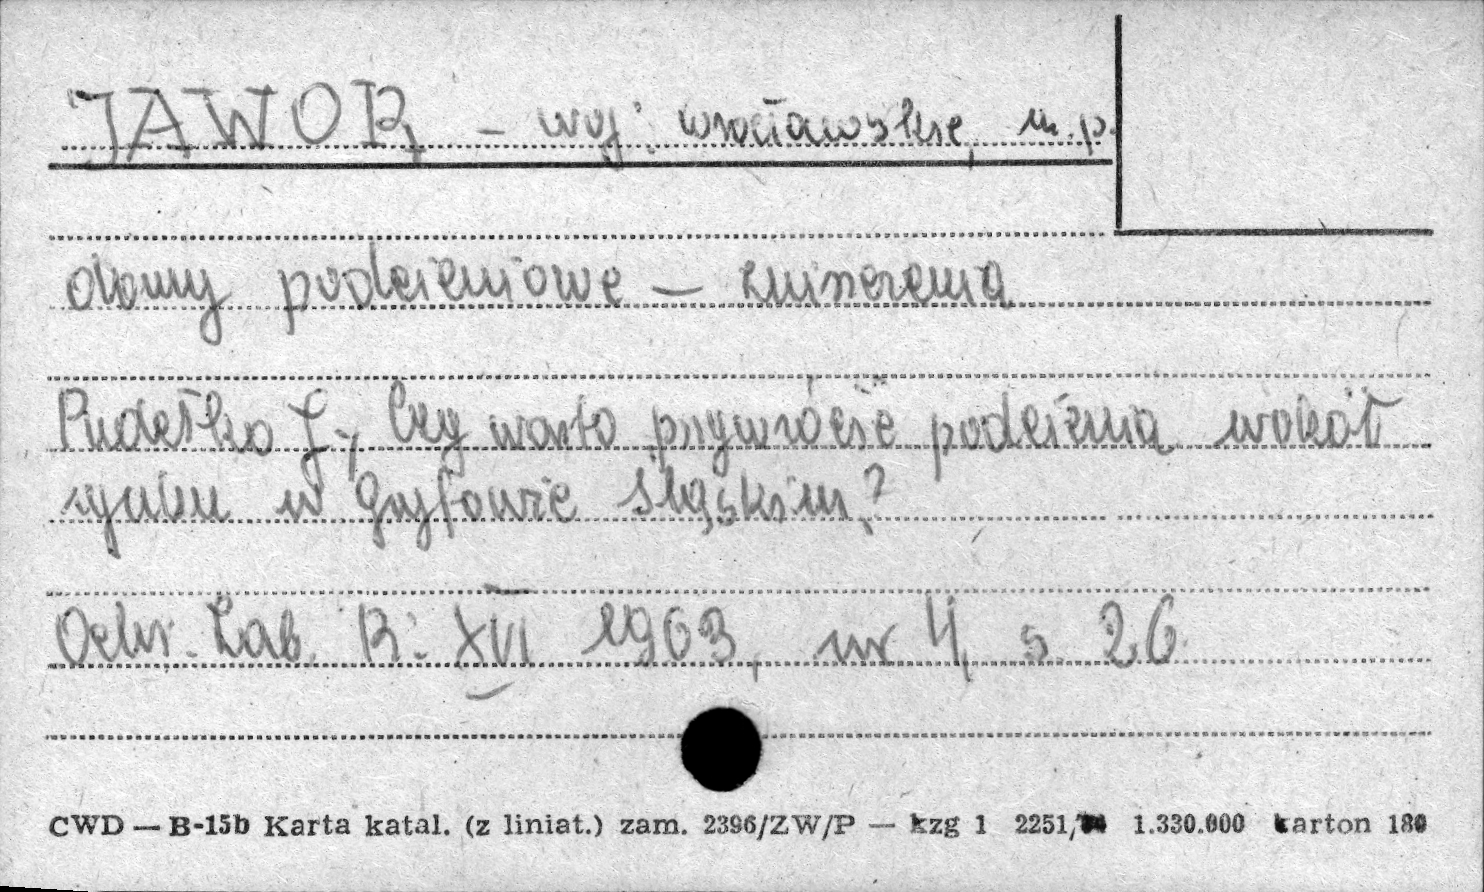 JAWOR, - woj. wrocławskie, m.p.
domy podcieniowe — zniszczenia
Pudełko J., Czy warto przywrócić podcienia wokół
rynku w Gryfowie Śląskim?
Ochr. Zab. R. XVI 1963, nr 4, s. 26
CWD — B-15b Karta katal. (z liniat.) zam. 2396/ZW/P — kzg 1 2251/ 1.330.000 karton 180